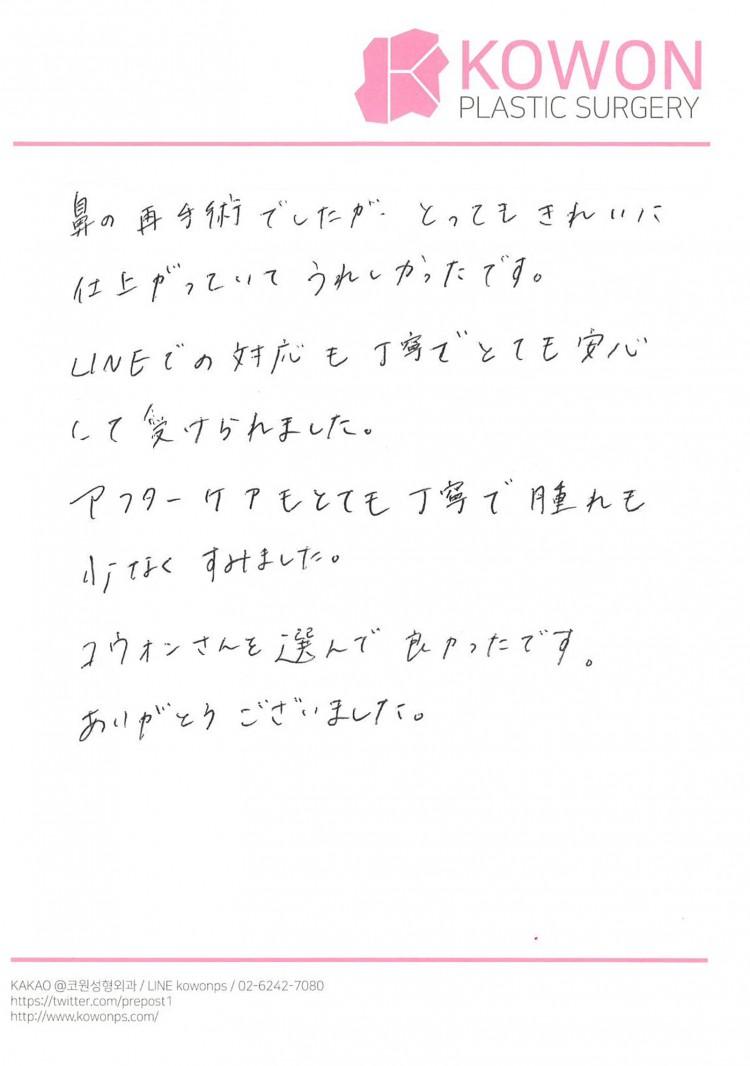 KOWON
PLASTIC SURGERY
鼻の再手術でしたが、とってもきれいに
仕上がっていてうれしかったです。
LINEでの対応も丁寧でとても安心
にて受けられました。
アフターケアもとても丁寧で腫れも
少なくすみました。
コウォンさんを選んで良かったです。
ありがとうございました。
KAKAO @코원성형외과 / LINE kowonps / 02-6242-7080
https://twitter.com/prepost1
http://www.kowonps.com/